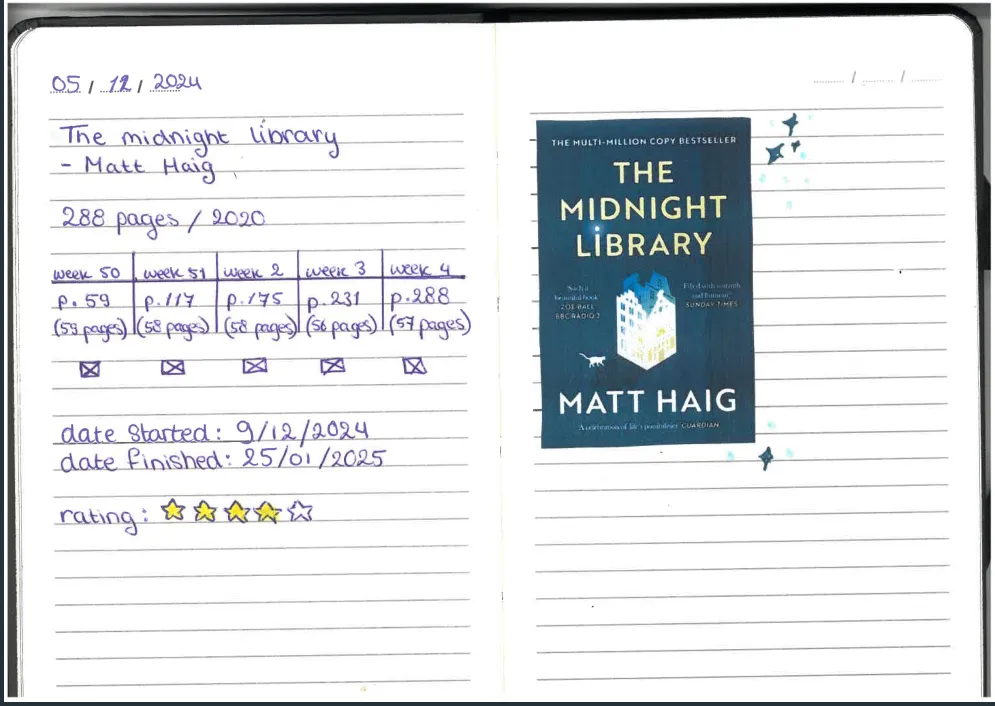 05 / 12 / 2024
The midnight library
- Matt Haig
288 pages / 2020
week 50 week 51 week 2 week 3 week 4
p. 59 p. 117 p. 175 p. 231 p. 288
(59 pages) (58 pages) (58 pages) (56 pages) (57 pages)
date started: 9/12/2024
date finished: 25/01/2025
rating:
THE MULTI-MILLION COPY BESTSELLER
THE
MIDNIGHT
LIBRARY
'Such a
beautiful book'
ZOE BALL
BBC RADIO 2
'Filled with warmth
and humour'
SUNDAY TIMES
MATT HAIG
'A celebration of life's possibilities' GUARDIAN